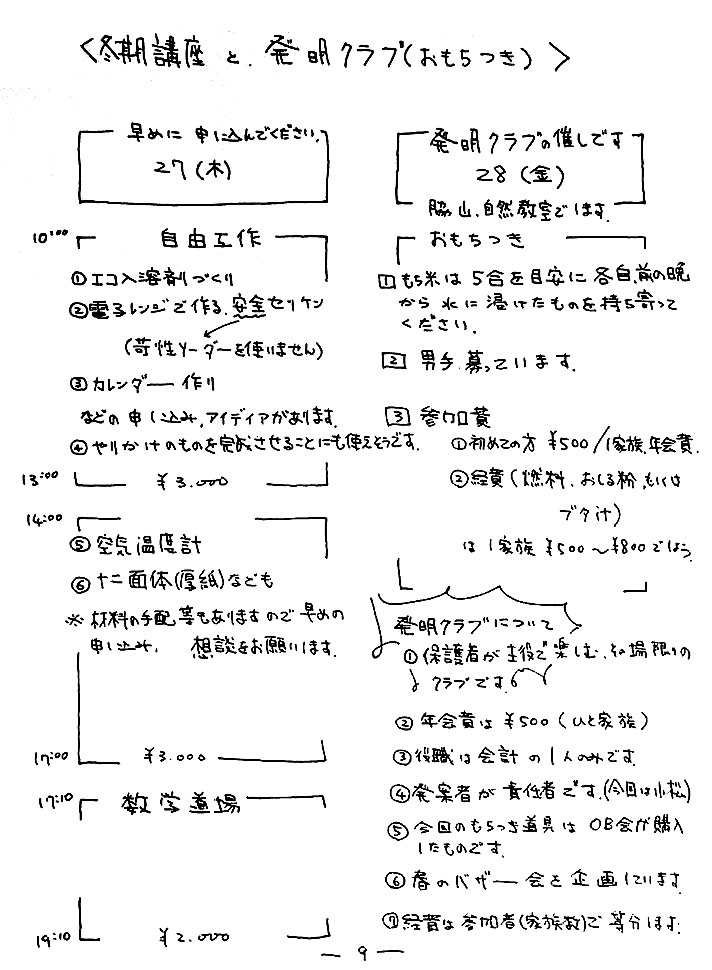 <冬期講座と、発明クラブ(おもちつき)>
早めに申し込んでください。
27(木)
10:00
自由工作
①エコ入溶剤づくり
②電子レンジで作る、安全セッケン
(苛性ソーダーを使いません)
③カレンダー作り
などの申し込み、アイディアがあります。
④やりかけのものを完成させることにも使えそうです。
13:00
¥3.000
14:00
⑤空気温度計
⑥十二面体(厚紙)なども
※材料の手配等もありますので早めの
申し込み、想談をお願いします。
17:00
¥3.000
17:10
数学道場
19:10
¥2.000
発明クラブの催しです
28(金)
脇山、自然教室でします。
おもちつき
1 もち米は5合を目安に各自、前の晩
から水に浸けたものを持ち寄って
ください。
2 男手募っています。
3 参加費
①初めての方 ¥500/1家族、年会費。
②経費(燃料、おしる粉、もしくは
ブタ汁)
は1家族¥500〜¥800でしょう。
発明クラブについて
①保護者が主役で楽しむ、その場限りの
クラブです。
②年会費は¥500(ひと家族)
③役職は会計の1人のみです。
④発案者が責任者です。(今回は小松)
⑤今回のもちつき道具はOB会が購入
したものです。
⑥春のバザー会を企画しています。
⑦経費は参加者(家族数)で等分します。
— 9 —